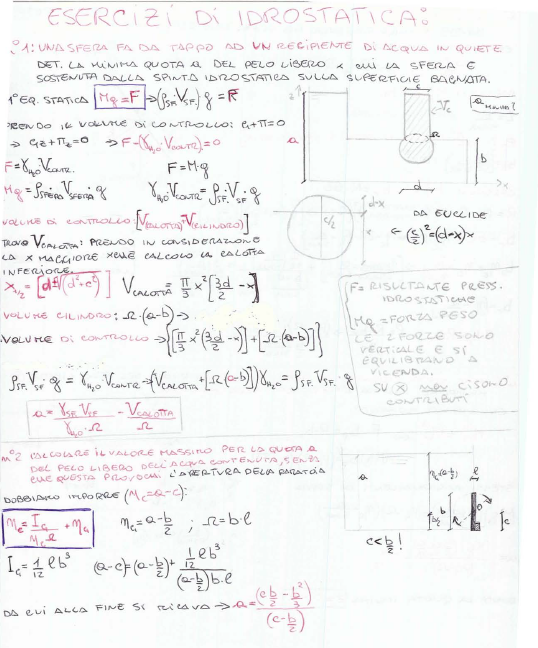 ESERCIZI DI IDROSTATICA:
n°1: UNA SFERA FA DA TAPPO AD UN RECIPIENTE DI ACQUA IN QUIETE
DET. LA MINIMA QUOTA a DEL PELO LIBERO X CUI LA SFERA È
SOSTENUTA DALLA SPINTA IDROSTATICA SULLA SUPERFICIE BAGNATA.
1° EQ. STATICA Mg = F → ρSF. VSF. g = F
PRENDO IL VOLUME DI CONTROLLO: G+Π=0
→ Gz+Πz=0 → F-(γH2O VCONTR.)=0
F=γH2O VCONTR. F=M·g
Mg = ρSFERA·VSFERA·g γH2O VCONTR = ρSF. VSF g
VOLUME DI CONTROLLO: [VCALOTTA+VCILINDRO]
TROVO VCALOTTA: PRENDO IN CONSIDERAZIONE
LA X MAGGIORE XCHÉ CALCOLO LA CALOTTA
INFERIORE.
VCALOTTA = π/3 x² [3d/2 - x]
VOLUME CILINDRO: Ω·(a-b) →
VOLUME DI CONTROLLO → {[π/3 x² (3d/2 - x)] + [Ω(a-b)]}
ρSF. VSF. g = γH2O VCONTR → (VCALOTTA + [Ω(a-b)]) γH2O = ρSF. VSF. g
a = γSF. VSF / γH2O·Ω - VCALOTTA / Ω
c
Vc
a
Ω
b
d
x
d-x
c/2
x
DA EUCLIDE
← (c/2)² = (d-x)x
F= RISULTANTE PRESS.
IDROSTATICHE
Mg = FORZA PESO
LE 2 FORZE SONO
VERTICALI E SI
EQUILIBRANO A
VICENDA.
SU X NON CI SONO
CONTRIBUTI
n°2 CALCOLARE IL VALORE MASSIMO PER LA QUOTA a
DEL PELO LIBERO DELL'ACQUA CONTENUTA, SENZA
CHE QUESTA PROVOCHI L'APERTURA DELLA PARATOIA
DOBBIAMO IMPORRE (ηc=a-c):
ηc = IG / Mc l + ηG ηG = a - b/2 ; Ω = b·l
IG = 1/12 l b³ (a-c) = (a - b/2) + 1/12 l b³ / (a - b/2) b·l
DA CUI ALLA FINE SI RICAVA → a = (cb/2 - b²/3) / (c - b/2)
a
b/2
b
l
c
c < b/2 !